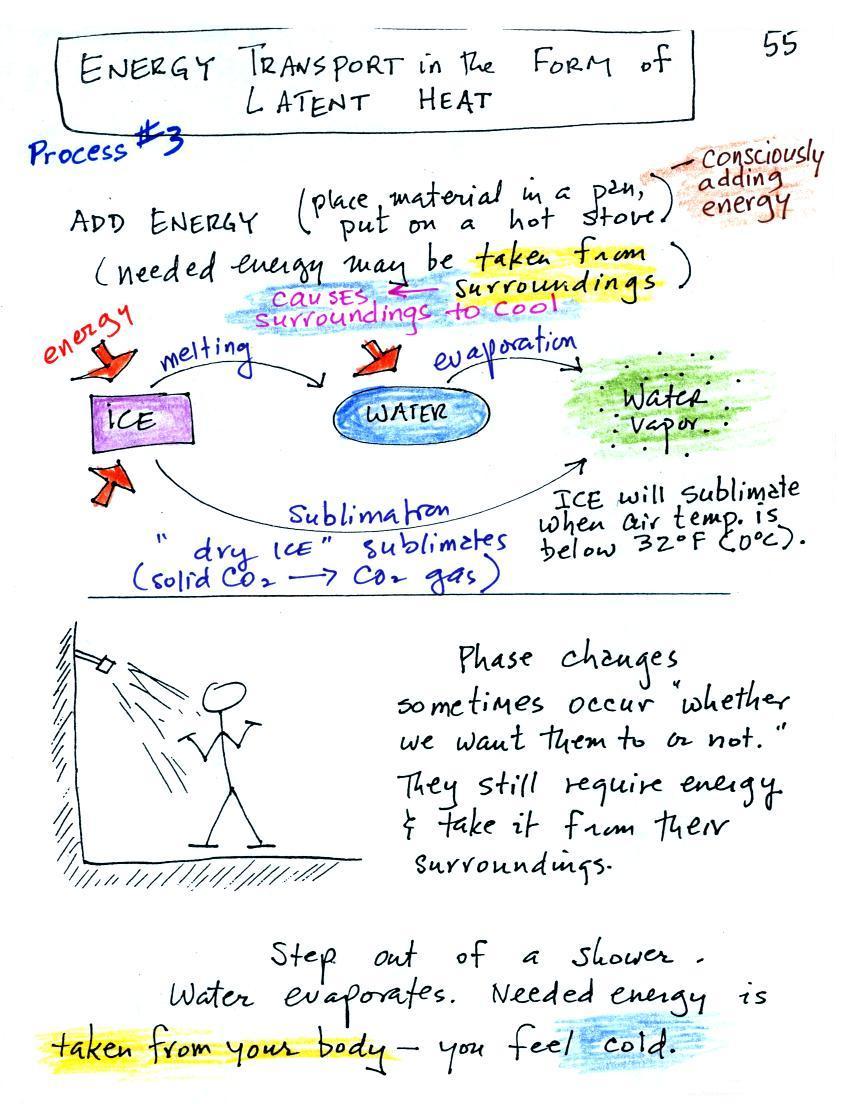 55
ENERGY TRANSPORT in the FORM of
LATENT HEAT
Process #3
— CONSCIOUSLY
adding
energy
ADD ENERGY (place material in a pan,
put on a hot stove)
(needed energy may be taken from
surroundings)
CAUSES ←
surroundings to cool
energy
melting
evaporation
ICE
WATER
Water
vapor
Sublimation
"dry ICE" sublimates
(solid CO₂ → CO₂ gas)
ICE will sublimate
when air temp. is
below 32°F (0°C).
Phase changes
sometimes occur "whether
we want them to or not."
They still require energy
& take it from their
surroundings.
Step out of a shower.
Water evaporates. Needed energy is
taken from your body — you feel cold.